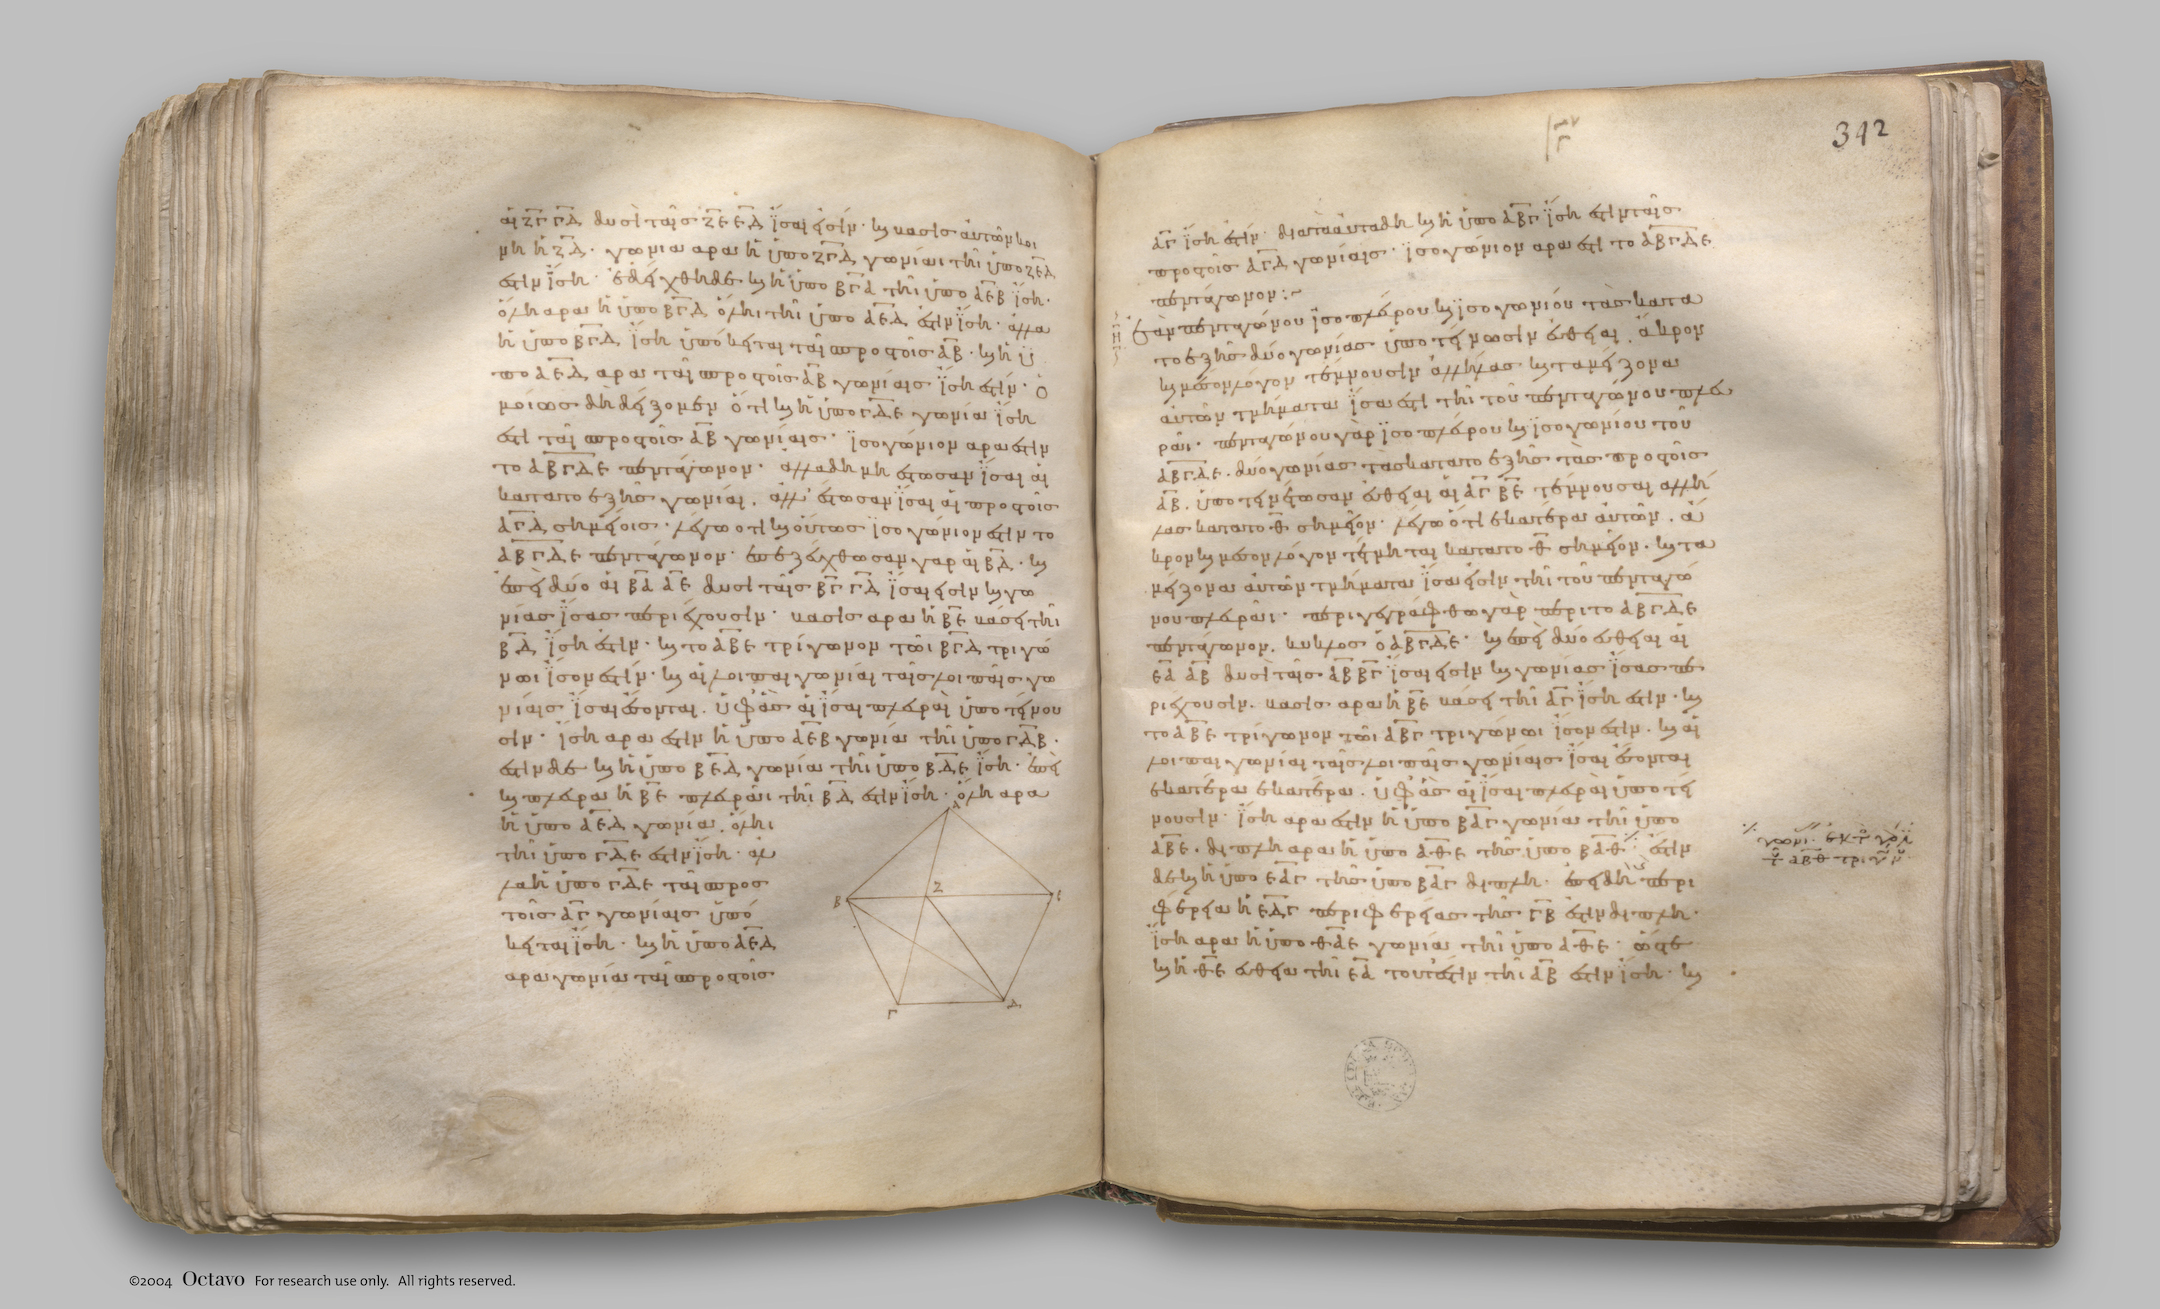 αἱ ΖΓ ΓΔ δυσὶ ταῖς ΖΕ ΕΔ ἴσαι εἰσίν· καὶ βάσις αὐτῶν κοι
νὴ ἡ ΖΔ· γωνία ἄρα ἡ ὑπὸ ΖΓΔ γωνίαι τῆι ὑπὸ ΖΕΔ
ἐστὶν ἴση· ἐδείχθη δὲ καὶ ἡ ὑπὸ ΒΓΑ τῆι ὑπὸ ΑΕΒ ἴση·
ὅλη ἄρα ἡ ὑπὸ ΒΓΔ ὅληι τῆι ὑπὸ ΑΕΔ ἐστὶν ἴση· ἀλλα
ἡ ὑπὸ ΒΓΔ ἴση ὑπόκειται ταῖ προς τοῖς ΑΒ· καὶ ἡ ὑ
πὸ ΑΕΔ ἄρα ταῖ προς τοῖς ΑΒ γωνίαις ἴση ἐστίν· ὁ
μοίως δὴ δείξομεν ὅτι καὶ ἡ ὑπὸ ΓΔΕ γωνία ἴση
ἐστὶ ταῖ προς τοῖς ΑΒ γωνίαις· ἰσογώνιον ἄρα ἐστὶν
τὸ ΑΒΓΔΕ πεντάγωνον· ἀλλα δὴ μὴ ἔστωσαν ἴσαι αἱ
κατα τὸ ἑξῆς γωνίαι. ἀλλ' ἔστωσαν ἴσαι αἱ προς τοῖς
ΑΓΔ σημείοις· λέγω ὅτι καὶ οὕτως ἰσογώνιον ἐστὶν τὸ
ΑΒΓΔΕ πεντάγωνον· ἐπεζεύχθωσαν γὰρ αἱ ΒΔ· καὶ
ἐπεὶ δύο αἱ ΒΑ ΑΕ δυσὶ ταῖς ΒΓ ΓΔ ἴσαι εἰσὶν καὶ γω
νίας ἴσας περιέχουσιν· βάσις ἄρα ἡ ΒΕ βάσει τῆι
ΒΔ ἴση ἐστίν· καὶ τὸ ΑΒΕ τρίγωνον τῶι ΒΓΔ τριγώ
νωι ἴσον ἐστίν· καὶ αἱ λοιπαι γωνίαι ταῖς λοιπαῖς γω
νίαις ἴσαι ἔσονται. ὑφ' ἃς αἱ ἴσαι πλευραὶ ὑποτείνου
σιν· ἴση ἄρα ἐστὶν ἡ ὑπὸ ΑΕΒ γωνία τῆι ὑπὸ ΓΔΒ·
ἐστὶν δὲ καὶ ἡ ὑπὸ ΒΕΔ γωνία τῆι ὑπὸ ΒΔΕ ἴση· ἐπεὶ
καὶ πλευρα ἡ ΒΕ πλευρᾶι τῆι ΒΔ ἐστὶν ἴση· ὅλη ἄρα
ἡ ὑπὸ ΑΕΔ γωνία. ὅληι
τῆι ὑπὸ ΓΔΕ ἐστὶν ἴση· ἀλ
λα ἡ ὑπὸ ΓΔΕ ταῖ προς
τοῖς ΑΓ γωνίαις ὑπό
κειται ἴση· καὶ ἡ ὑπὸ ΑΕΔ
ἄρα γωνία ταῖ προς τοῖς
Α
Ζ
Β
Ε
Γ
Δ
342
ΑΓ ἴση ἐστίν· διὰ τὰ αὐτὰ δὴ καὶ ἡ ὑπὸ ΑΒΓ ἴση ἐστὶν ταῖς
προς τοῖς ΑΓΔ γωνίαις· ἰσογώνιον ἄρα ἐστὶ τὸ ΑΒΓΔΕ
πεντάγωνον:~
Η
Ἐὰν πενταγώνου ἰσοπλεύρου καὶ ἰσογωνίου τὰς κατα
τὸ ἑξῆς δύο γωνίας ὑποτείνωσιν εὐθεῖαι. ἄκρον
καὶ μέσον λόγον τέμνουσιν ἀλλήλας καὶ τὰ μείζονα
αὐτῶν τμήματα ἴσα ἐστὶ τῆι τοῦ πενταγώνου πλευ
ρᾶι· πενταγώνου γὰρ ἰσοπλεύρου καὶ ἰσογωνίου τοῦ
ΑΒΓΔΕ. δύο γωνίας τὰς κατα τὸ ἑξῆς τὰς προς τοῖς
ΑΒ. ὑποτεινέτωσαν εὐθεῖαι αἱ ΑΓ ΒΕ τέμνουσαι ἀλλή
λας κατα τὸ Θ σημεῖον· λέγω ὅτι ἑκατέρα αὐτῶν. ἄ
κρον καὶ μέσον λόγον τέτμηται κατα τὸ Θ σημεῖον. καὶ τὰ
μείζονα αὐτῶν τμήματα ἴσα εἰσὶν τῆι τοῦ πενταγώ
νου πλευρᾶι· περιγεγράφθω γὰρ περὶ τὸ ΑΒΓΔΕ
πεντάγωνον. κύκλος ὁ ΑΒΓΔΕ· καὶ ἐπεὶ δύο εὐθεῖαι αἱ
ΕΑ ΑΒ δυσὶ ταῖς ΑΒ ΒΓ ἴσαι εἰσὶν καὶ γωνίας ἴσας πε
ριέχουσιν. βάσις ἄρα ἡ ΒΕ βάσει τῆι ΑΓ ἴση ἐστίν· καὶ
τὸ ΑΒΕ τρίγωνον τῶι ΑΒΓ τριγώνωι ἴσον ἐστίν. καὶ αἱ
λοιπαι γωνίαι ταῖς λοιπαῖς γωνίαις ἴσαι ἔσονται
ἑκατέρα ἑκατέρα. ὑφ' ἃς αἱ ἴσαι πλευραὶ ὑποτεί
νουσιν· ἴση ἄρα ἐστὶν ἡ ὑπὸ ΒΑΓ γωνία τῆι ὑπὸ
ΑΒΕ. διπλῆ ἄρα ἡ ὑπὸ ΑΘΕ τῆς ὑπὸ ΒΑΘ· ἐστὶν
δὲ καὶ ἡ ὑπὸ ΕΑΓ τῆς ὑπὸ ΒΑΓ διπλῆ· ἐπειδὴ περι
φέρεια ἡ ΕΔΓ περιφερείας τῆς ΓΒ ἐστὶν διπλῆ·
ἴση ἄρα ἡ ὑπὸ ΘΑΕ γωνία τῆι ὑπὸ ΑΘΕ· ὥστε
καὶ ἡ ΘΕ εὐθεῖα τῆι ΕΑ τουτέστιν τῆι ΑΒ ἐστὶν ἴση· καὶ
©2004 Octavo For research use only. All rights reserved.